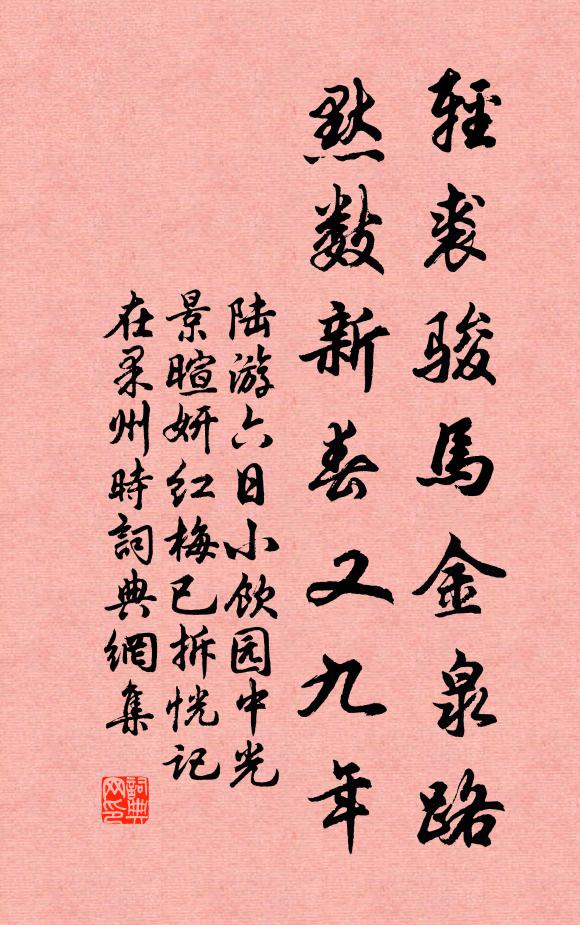 輕裘駿馬金泉路
默数新春又九年
陆游六日小饮园中光
景暄妍红梅已拆恍记
在果州時詞典網集
詞典
网印